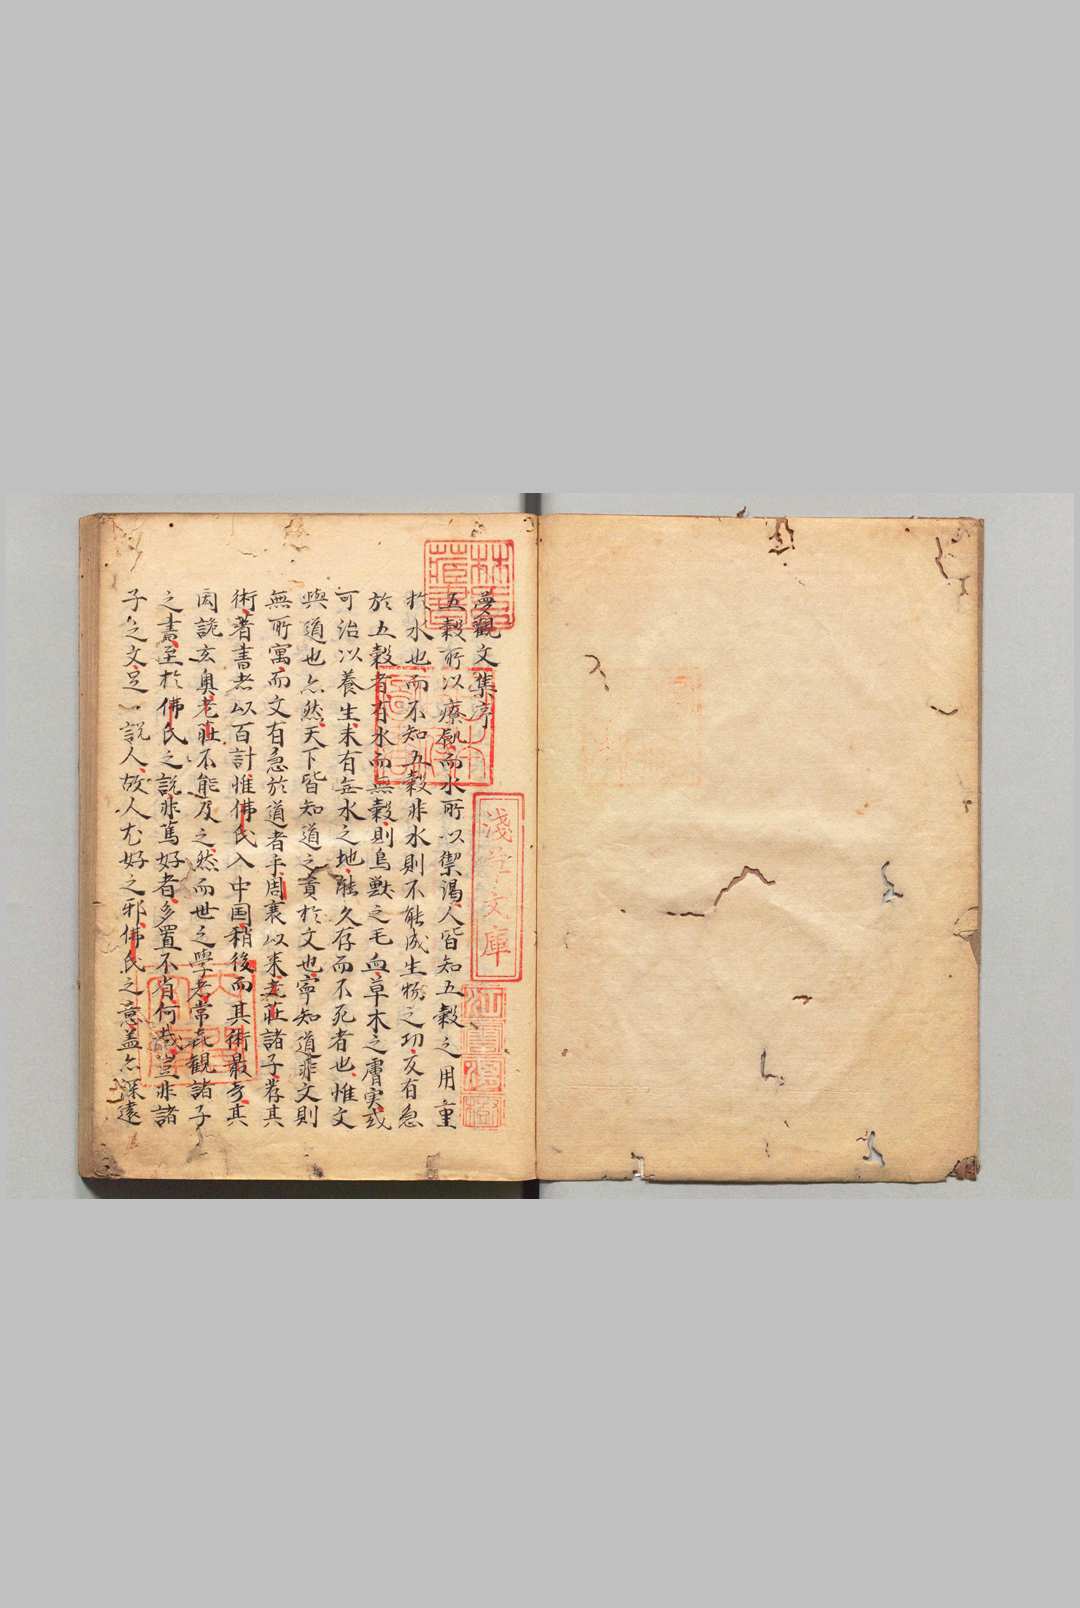 夢觀文集序
五穀所以療飢而水所以禦渴人皆知五穀之用重
扵水也而不知五穀非水則不能成生物之功友有急
於五穀者有水而無穀則鳥獸之毛血草木之膚実或
可治以養生未有無水之地能久存而不死者也惟文
與道也亦然天下皆知道之貴扵文也寧知道非文則
無所寓而文有急於道者乎周衰以来老莊諸子挟其
術著書者以百計惟佛氏入中国稍後而其術最奇其
閎詭玄奥老莊不能及之然而世之學者常喜觀諸子
之書至扵佛氏之說非篤好者多置不省何哉豈非諸
子之文足以說人故人尤好之邪佛氏之意盖亦深遠
林氏藏書
淺草文庫